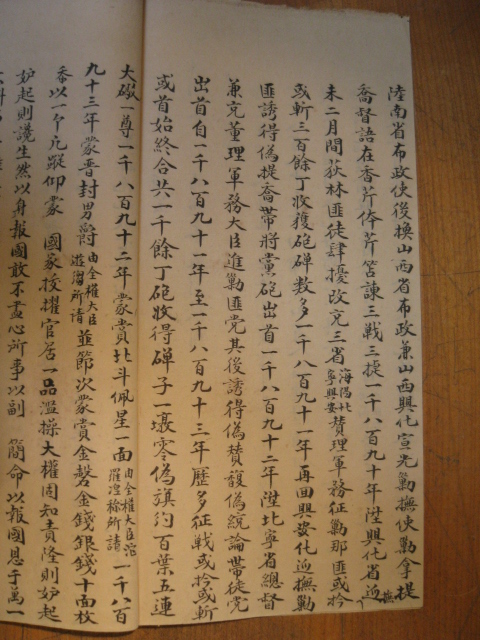 陸南省布政使後換山西省布政兼山西興化宣光勦撫使勦拿提
喬督語在香芹侔芹筥諫三戰三捷一千八百九十年陞興化省巡撫
未二月間荻林匪徒肆擾改充三省海陽北寧興安贊理軍務征勦那匪或拎
或斬三百餘丁收獲砲碑數多一千八百九十一年再回興安化巡撫勦
匪誘得偽提喬帶將黨砲出首一千八百九十二年陞北寧省總督
兼充董理軍務大臣進勦匪党其後誘得偽贊馥偽統論帶徒党
出首自一千八百九十一年至一千八百九十三年歷多征戰或拎或斬
或首始終合共一千餘丁砲收得碑子一塸零偽旗約百葉五連
大礮一尊一千八百九十二年蒙賞北斗佩星一面由全權大臣沿羅湟称所請一千八百
九十三年蒙晋封男爵由全權大臣遊溜所請並節次蒙賞金磬金錢銀錢十面枚
忝以一介凡蹤仰蒙 國家授擢官居一品濫操大權固知責隆則妒起
妒起則謗生然以身報國敢不盡心所事以副 簡命以報國恩于萬一